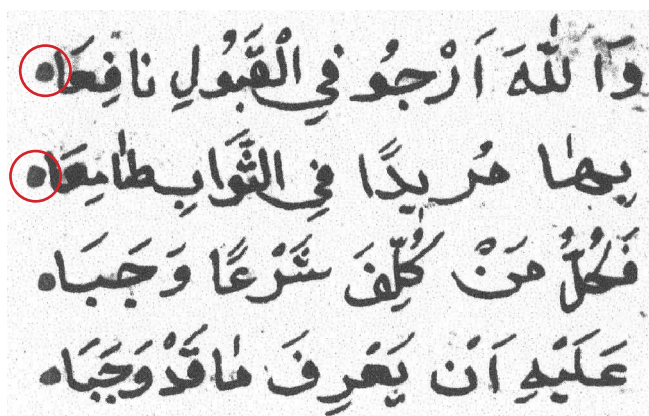 وَٱللّٰهَ اَرْجُو فِي الْقَبُولِ نَافِعَا •
بِهٰا مُرِيدًا فِي الثَّوَابِ طٰامِعَا •
فَكُلُّ مَنْ كُلِّفَ شَرْعًا وَجَبَا •
عَلَيْهِ اَنْ يَعْرِفَ مٰا قَدْ وَجَبَا •